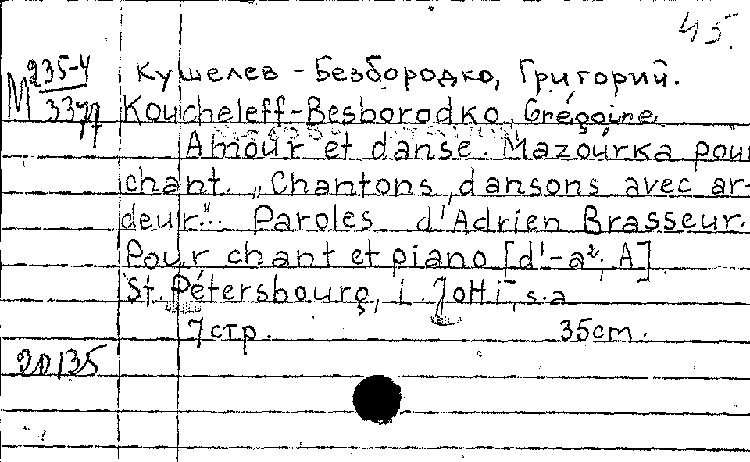 45.
М 235-4
3377
Кушелев - Безбородко, Григорий.
Koucheleff-Besborodko, Grégoire.
Amour et danse. Mazourka pour
chant. „Chantons, dansons avec ar-
deur." Paroles d'Adrien Brasseur.
Pour chant et piano [d¹-a², A]
St. Pétersbourg, L. Jotti, s.a
7 стр. 35 cm.
20135